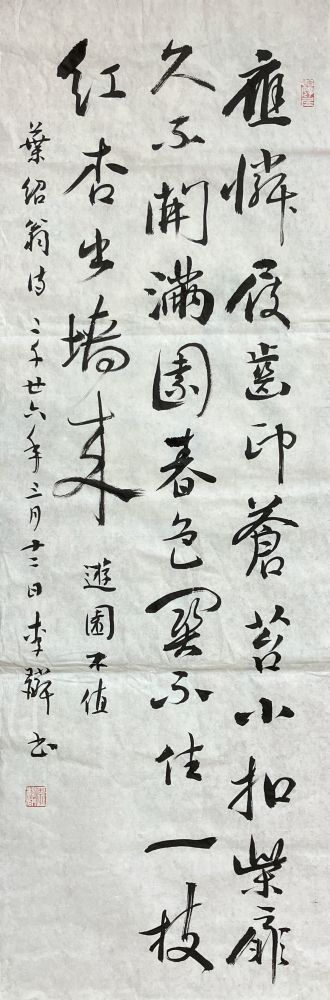 應憐屐齒印蒼苔小扣柴扉
久不開滿園春色関不住一枝
紅杏出墙来 遊園不值
葉紹翁诗二千廿六年三月廿二日李书